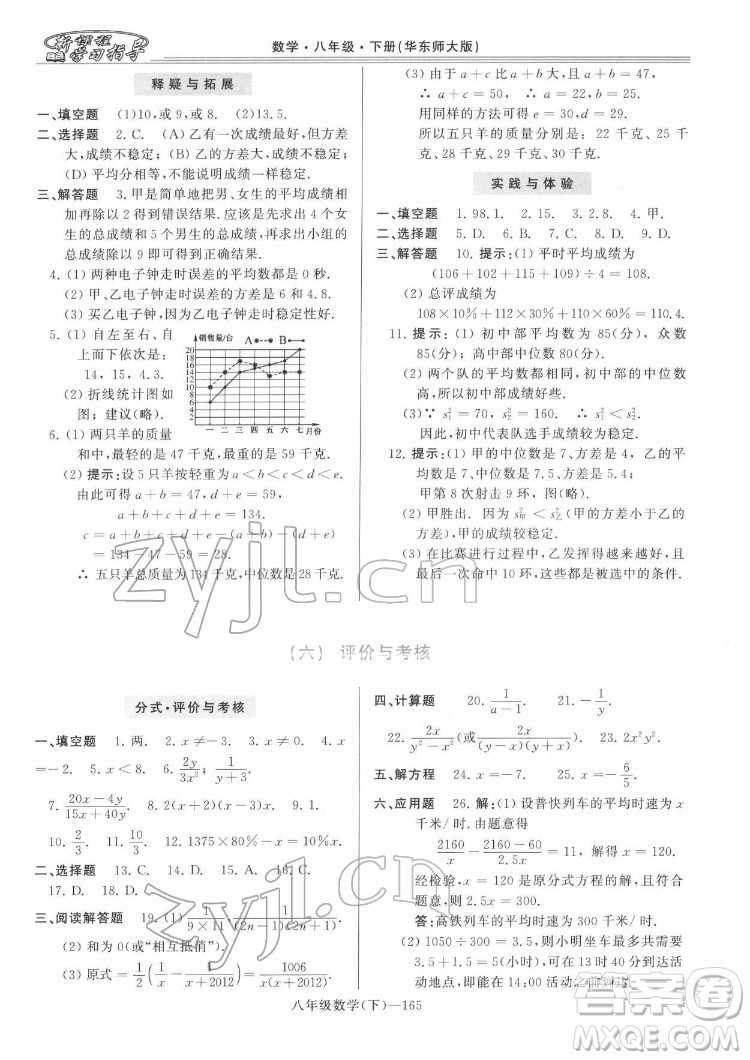 新课程
学习指导
数学·八年级·下册(华东师大版)
释疑与拓展
一、填空题 (1)10,或9,或8. (2)13.5.
二、选择题 2. C. (A)乙有一次成绩最好,但方差
大,成绩不稳定;(B)乙的方差大,成绩不稳定;
(D)平均分相等,不能说明成绩一样稳定.
三、解答题 3.甲是简单地把男、女生的平均成绩
相加再除以2得到错误结果.应该先求出4个女
生的总成绩和5个男生的总成绩,再求出小组的
总成绩除以9即可得到正确结果.
4. (1)两种电子钟走时误差的平均数都是0秒.
(2)甲、乙电子钟走时误差的方差是6和4.8.
(3)买乙种电子钟,因为平均水平相同,且乙的
方差较小,走时稳定性好.
5. (1)自左至右、自
上而下依次是:
14,15,4.3.
(2)折线统计图如
图;建议(略).
销售量/台 A B
20
18
16
14
12
10
8
6
4
2
0
一 二 三 四 五 六 七 月份
6. (1)两只羊的质量
和中,最轻的是47千克,最重的是59千克.
(2)提示:设5只羊的质量为a<b<c<d<e.
由此可得a+b=47,d+e=59,
a+b+c+d+e=134.
c=a+b+c+d+e-(a+b)-(d+e)
=134-47-59=28.
∴ 五只羊总质量为134千克,中位数是28千克.
(3)由于a+c比a+b大,而比其他的都小,
∴ a+c=50, ∴ a=22,b=25.
用同样的方法可得e=30,d=29.
所以五只羊的质量分别是:22千克、25千克、
28千克、29千克、30千克.
实践与体验
一、填空题 1. 98.1. 2. 15. 3. 2.8. 4. 甲.
二、选择题 5. D. 6. B. 7. C. 8. C. 9. D.
三、解答题 10. 提示:(1)平时平均成绩为
(106+102+115+109)÷4=108.
(2)总评成绩为
108×10%+112×30%+110×60%=110.4.
11. 提示:(1)初中部平均数为85(分),众数
85(分);高中部中位数80(分).
(2)两个队的平均数都相同,初中部的中位数
高,所以初中部成绩好些.
(3)∵ s₁²=70,s₂²=160. ∴ s₁²<s₂².
因此,初中代表队选手成绩较为稳定.
12. 提示:(1)甲的中位数是7,方差为4,乙的平
均数是7,中位数是7.5、方差是5.4.
甲第8次射击9环,图(略).
(2)甲胜出. 因为s甲²<s乙²(甲的方差小于乙的
方差),甲的成绩较稳定.
(3)在比赛进行过程中,乙发挥越来越好,且
最后一次命中10环,这些都是被选中的条件.
(六) 评价与考核
分式·评价与考核
一、填空题 1. 两. 2. x≠-3. 3. x≠0. 4. x
=-2. 5. x<8. 6. 2y/3x²; 1/(y+3).
7. (20x-4y)/(15x+40y). 8. 2(x+2)(x-2). 9. 1.
10. 2/3. 11. 10/3. 12. 1375×80%-x=10%x.
二、选择题 13. C. 14. D. 15. C. 16. C.
17. D. 18. D.
三、阅读解答题 19. (1) 1/(9×11), 1/((2n-1)(2n+1)).
(2)和为0(或“相互抵消”).
(3)原式=1/2(1/x-1/(x+2012))=1006/(x(x+2012)).
四、计算题 20. 1/(a-1). 21. -1/x.
22. 2x/(y²-x²)(或2x/((y-x)(y+x))). 23. 2x²y².
五、解方程 24. x=-7. 25. x=-6/5.
六、应用题 26. 解:(1)设普快列车的平均时速为x
千米/时. 由题意得
2160/x-(2160-60)/2.5x=11. x=120.
经检验,x=120是原分式方程的解,
2.5x=300.
答:高铁列车的平均时速为300千米/时.
(2)1050÷300=3.5,则小明坐车共需要
3.5+1.5=5小时,可在13时40分到达活
动地点,即能在14:00活动开始前到达.
八年级数学(下)—165
zyjl.cn
zyjl.cn
答案圈
MXQE.COM